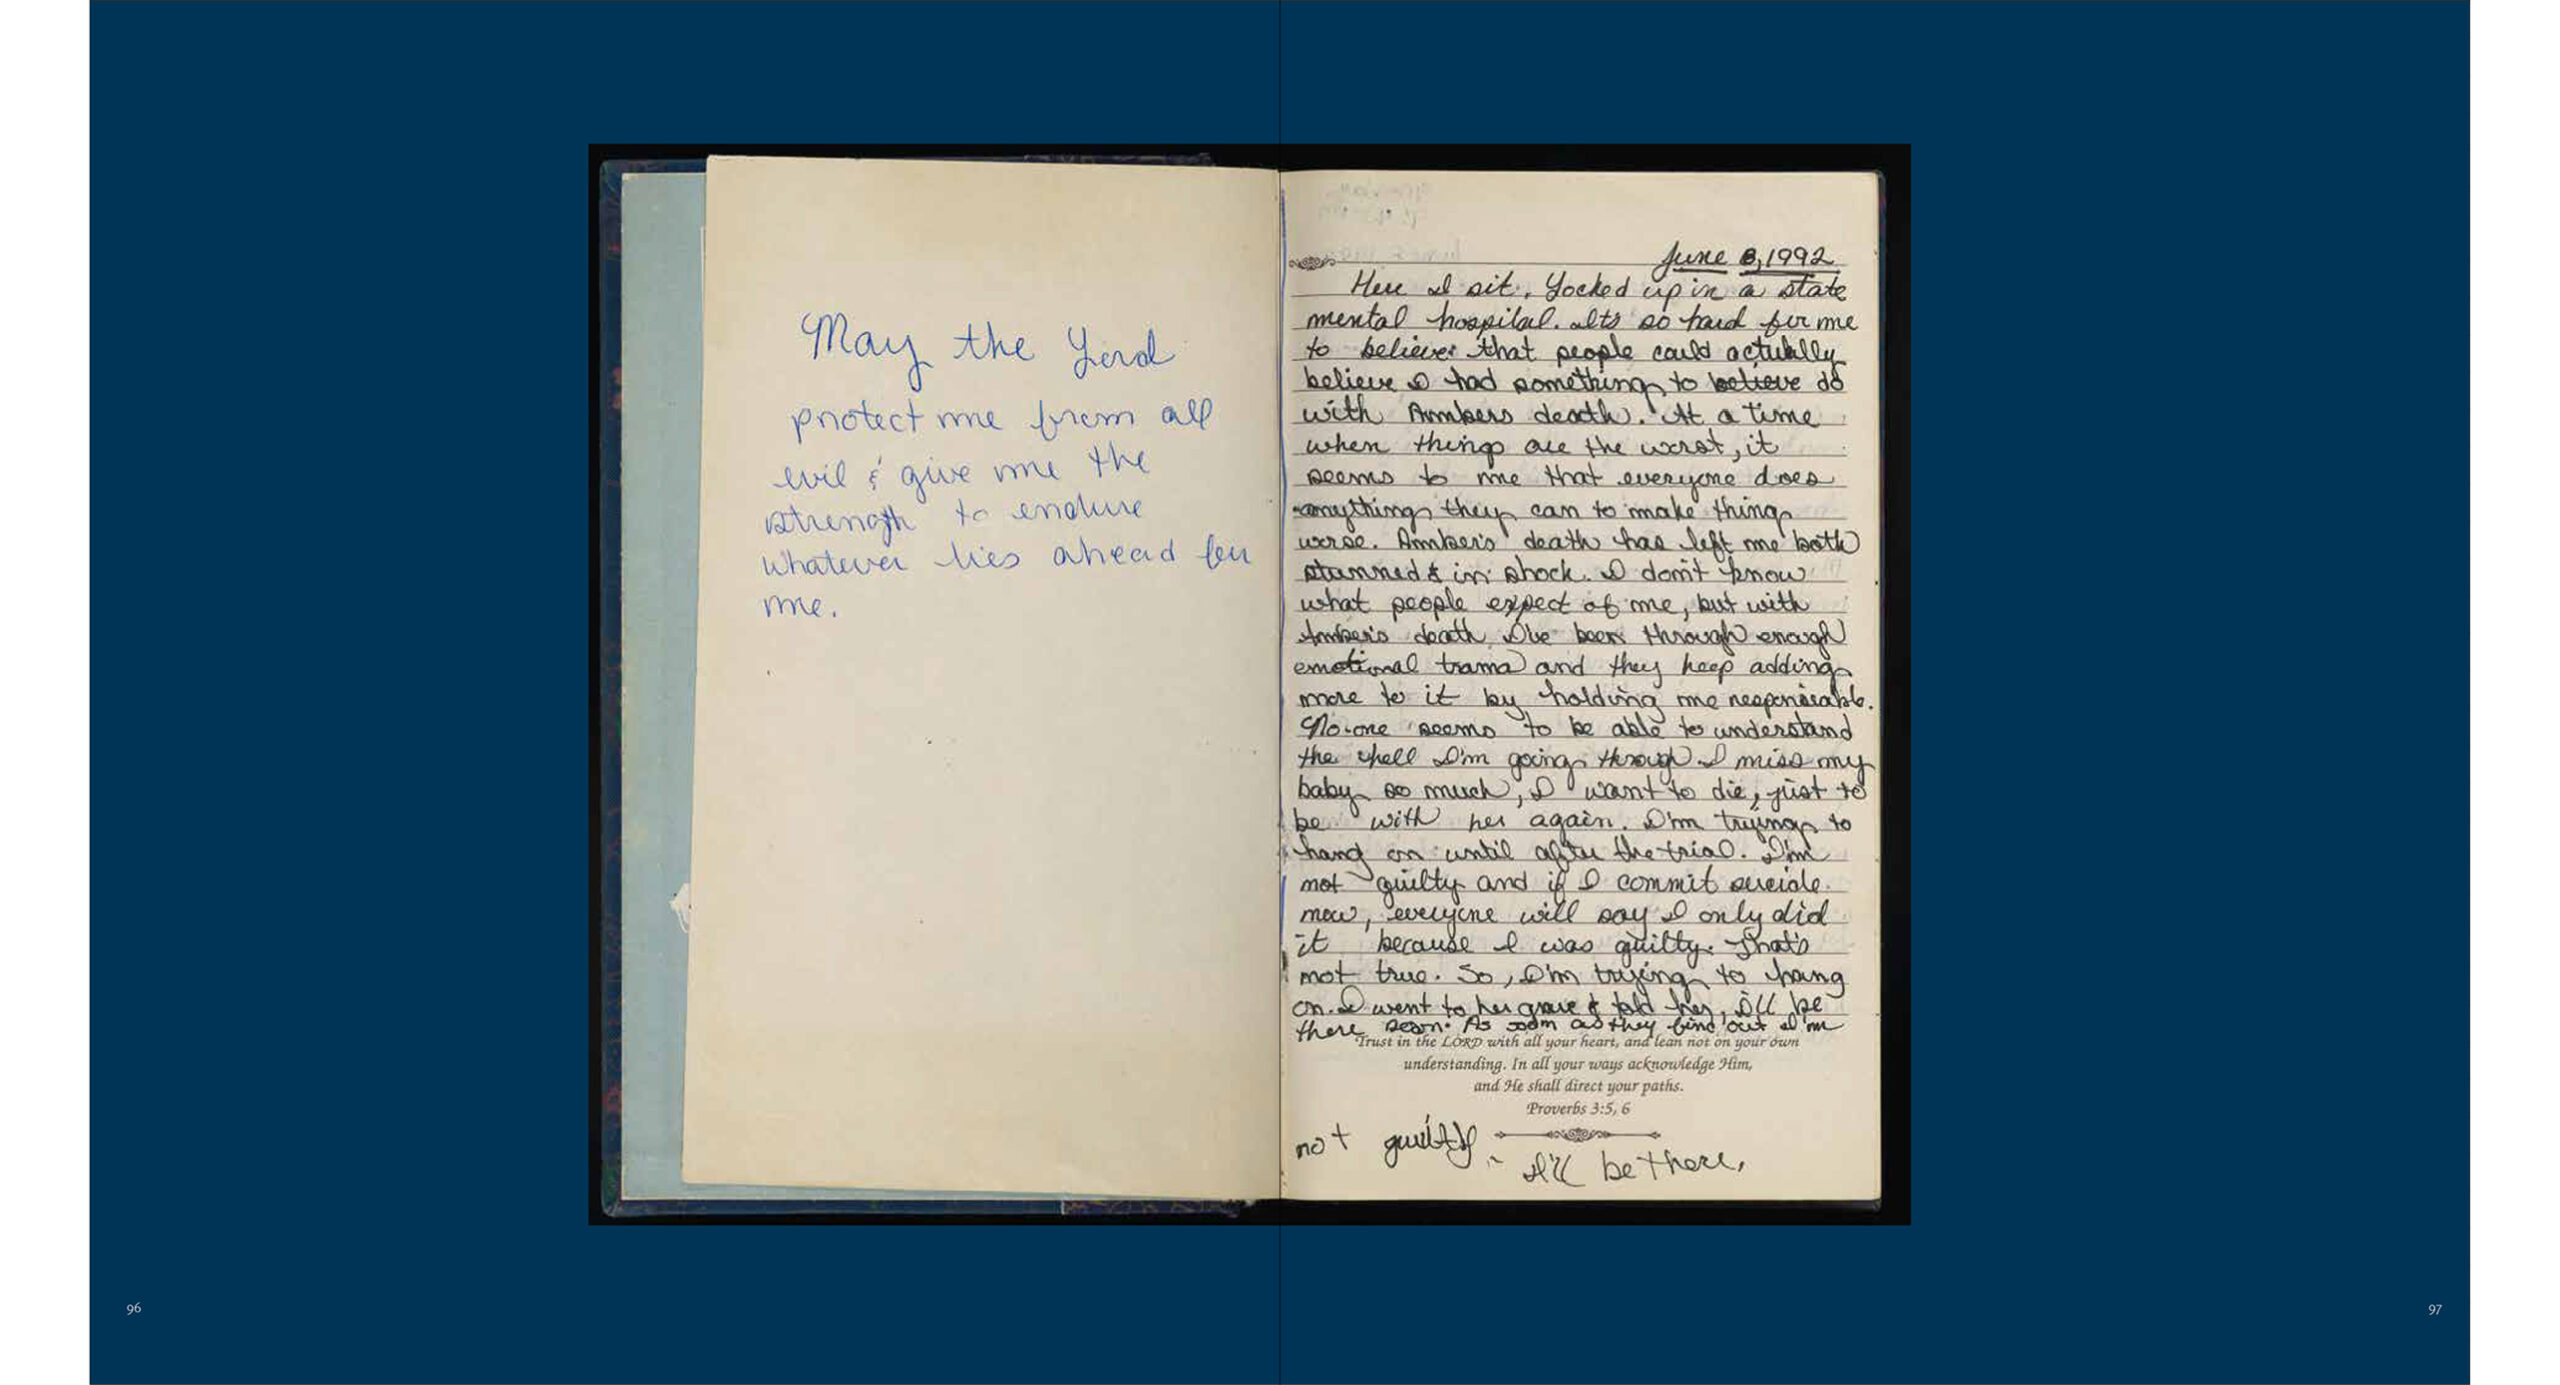 May the Lord
protect me from all
evil & give me the
strength to endure
whatever lies ahead for
me.
June 8, 1992
Here I sit. Locked up in a state
mental hospital. Its so hard for me
to believe that people could actually
believe I had something to believe do
with Ambers death. At a time
when things are the worst, it
seems to me that everyone does
anything they can to make things
worse. Amber's death has left me both
stunned & in shock. I don't know
what people expect of me, but with
Amber's death, I've been through enough
emotional trama and they keep adding
more to it by holding me responsible.
No-one seems to be able to understand
the hell I'm going through. I miss my
baby so much, I want to die, just to
be with her again. I'm trying to
hang on until after the trial. I'm
not guilty and if I commit suicide
now, everyone will say I only did
it because I was guilty. That's
not true. So, I'm trying to hang
on. I went to her grave & told her, I'll be
there soon. As soon as they find out I'm
Trust in the LORD with all your heart, and lean not on your own
understanding. In all your ways acknowledge Him,
and He shall direct your paths.
Proverbs 3:5, 6
not guilty - I'll be there.
96
97